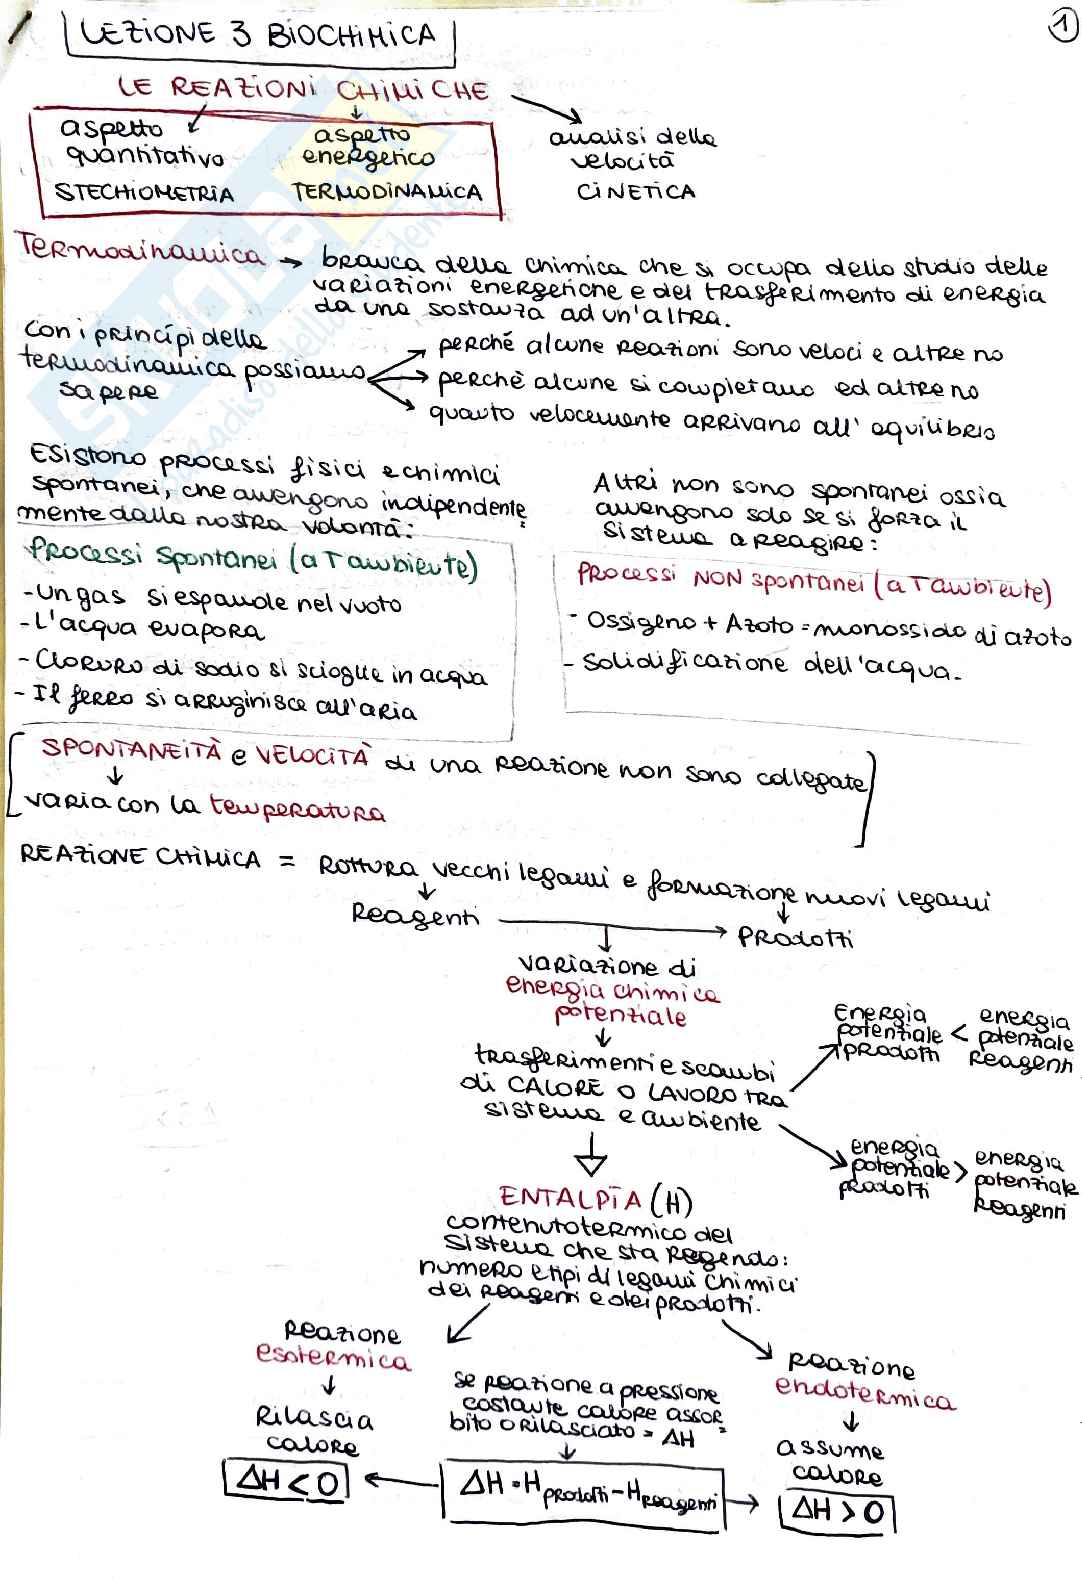 LEZIONE 3 BIOCHIMICA
1
LE REAZIONI CHIMICHE
aspetto
quantitativo
STECHIOMETRIA
aspetto
energetico
TERMODINAMICA
analisi della
velocità
CINETICA
Termodinamica → branca della chimica che si occupa dello studio delle
variazioni energetiche e del trasferimento di energia
da una sostanza ad un'altra.
Con i princípi della
termodinamica possiamo
sapere
perché alcune reazioni sono veloci e altre no
perchè alcune si completano ed altre no
quanto velocemente arrivano all' equilibrio
Esistono processi fisici e chimici
spontanei, che avvengono indipendente=
mente dalla nostra volontà:
Processi spontanei (a T ambiente)
- Un gas si espande nel vuoto
- L'acqua evapora
- Cloruro di sodio si scioglie in acqua
- Il ferro si arruginisce all'aria
Altri non sono spontanei ossia
avvengono solo se si forza il
sistema a reagire:
Processi NON spontanei (a T ambiente)
- Ossigeno + Azoto = monossido di azoto
- Solidificazione dell'acqua.
SPONTANEITÀ e VELOCITÀ di una reazione non sono collegate
↓
varia con la temperatura
REAZIONE CHIMICA = Rottura vecchi legami e formazione nuovi legami
Reagenti → Prodotti
variazione di
energia chimica
potenziale
trasferimenti e scambi
di CALORE O LAVORO tra
sistema e ambiente
Energia
potenziale
prodotti
<
energia
potenziale
reagenti
energia
potenziale
prodotti
>
energia
potenziale
reagenti
ENTALPIA (H)
contenuto termico del
sistema che sta regendo:
numero e tipi di legami chimici
dei reagenti e dei prodotti.
Reazione
esotermica
↓
Rilascia
calore
ΔH < 0
se reazione a pressione
costante calore assor=
bito o rilasciato = ΔH
↓
ΔH = Hprodotti - Hreagenti
Reazione
endotermica
↓
assume
calore
ΔH > 0